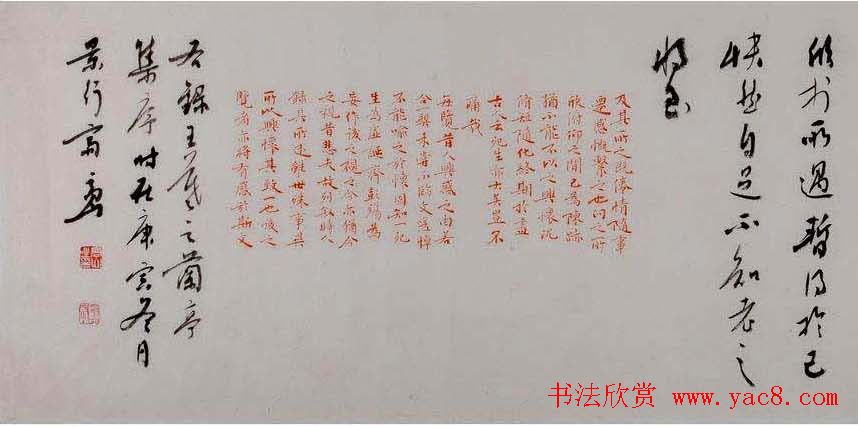 欣於所遇暫得於己
快然自足不知老之
將至
及其所之既倦情隨事
遷感慨繫之也向之所
欣俯仰之間已為陳跡
猶不能不以之興懷況
脩短隨化終期於盡
古人云死生亦大矣豈不
痛哉
每覽昔人興感之由若
合一契未嘗不臨文嗟悼
不能喻之於懷固知一死
生為虛誕齊彭殤為
妄作後之視今亦猶今
之視昔悲夫故列敘時人
錄其所述雖世殊事異
所以興懷其致一也後之
覽者亦將有感於斯文
右錄王羲之蘭亭
集序時在庚寅冬月
景行
书法欣赏 www.yac8.com